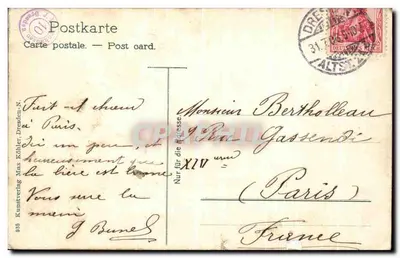 Postkarte
Carte postale. — Post card.
à Paris.
Ici un peu et
heureusement que
la bière est bonne
Vous serre la
main
Monsieur Bertholleau
9 Rue Gassendi
XIV eme
(Paris)
France
Nur für die Adresse.
Kunstverlag Max Köhler, Dresden-N.
DRES
ALTST.